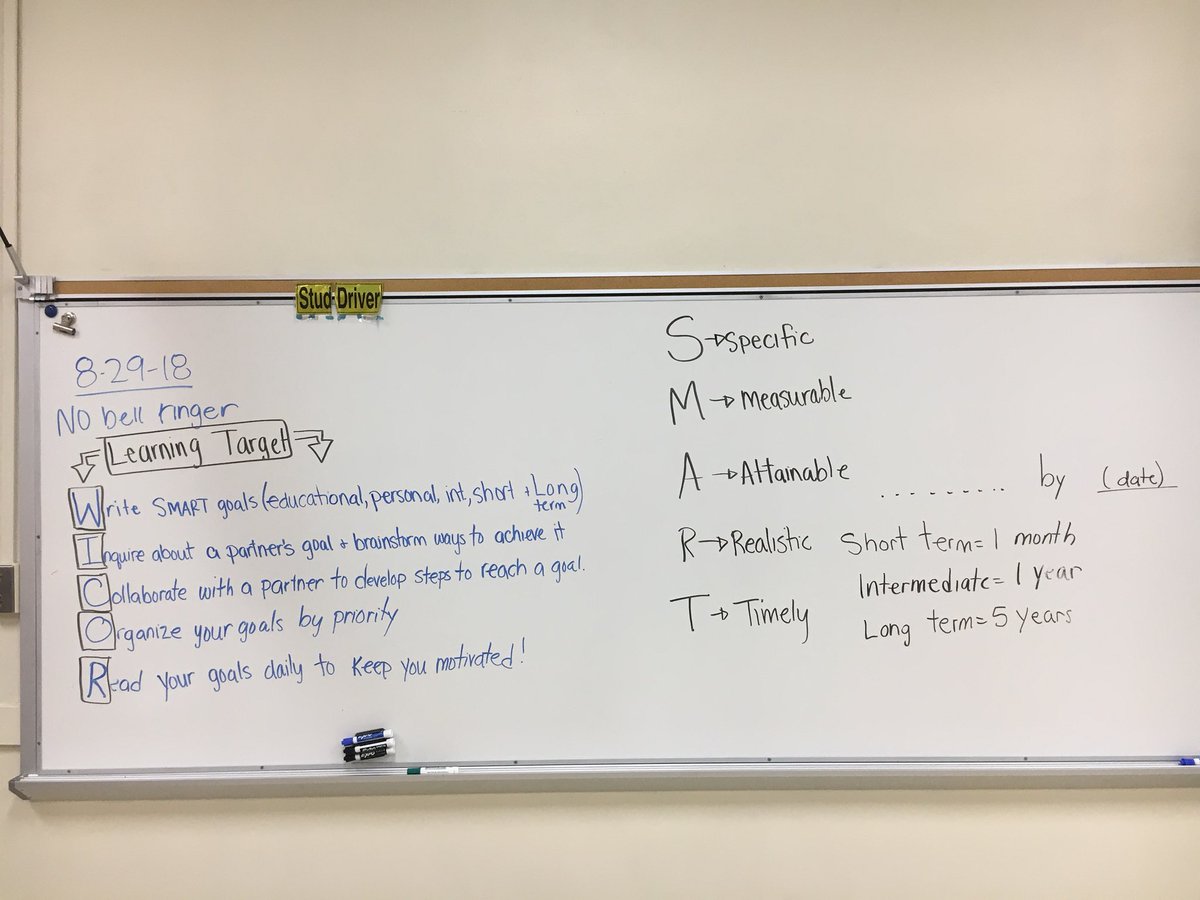 Stud Driver
8-29-18
NO bell ringer
Learning Target
Write SMART goals (educational, personal, int, short + Long term)
Inquire about a partner's goal + brainstorm ways to achieve it
Collaborate with a partner to develop steps to reach a goal.
Organize your goals by priority
Read your goals daily to keep you motivated!
S → specific
M → measurable
A → Attainable
......... by (date)
R → Realistic
Short term = 1 month
Intermediate = 1 year
T → Timely
Long term = 5 years